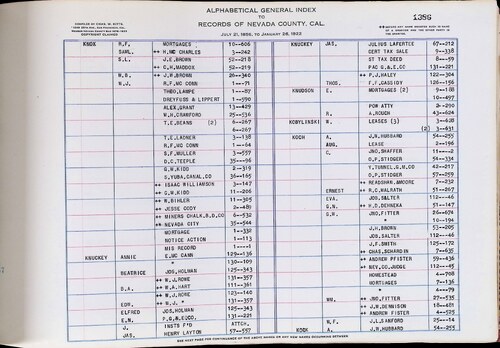 ALPHABETICAL GENERAL INDEX
TO
RECORDS OF NEVADA COUNTY, CAL.
JULY 21, 1856, TO JANUARY 28, 1902
COMPILED BY CHAS. W. KITTS
COPYRIGHT CLAIMED
1386
KNOX R.F. MORTGAGES 10--606
SAML. ++ H. MC CHARLES 3--042
S.L. J.E. BROWN 52--218
++ C.H. MADDOX 52--219
W.B. ++ J.H. BROWN 26--340
W.J. R.F. MC CONN 1--71
THEO, LAMPE 1--87
DREYFUSS & LIPPERT 1--590
ALEX, GRANT 13--429
W.H. CRAWFORD 25--536
T.E. BEANS (2) 6--267
6--267
T.E. LADNER 3--138
R.F. MC CONN 1--64
G.F. MULLER 3--557
D.C. TEEPLE 35--
G.W. KIDD 2--319
S. YUBA, CANAL, CO 36--165
++ ISAAC WILLIAMSON 3--147
++ G.W. KIDD 11--206
++ W. BIHLER 11--305
++ JESSE CODY 2--489
++ MINERS CHALK, B, D, CO 6--532
++ NEVADA CITY 35--544
MORTGAGE 1--332
NOTICE ACTION 1--113
MIS RECORD 1----1
KNUCKEY ANNIE E. MC CANN 129--136
" 130--109
BEATRICE JOS, HOLMAN 125--343
++ W.J. ROWE 131--357
D.A. ++ W.A. HART 111--361
++ W.J. ROWE 123--140
EDW. ++ W.J. " 131--357
ELFRED JOS, HOLMAN 125--343
E.N. P.G. & E. CO. 131--221
J. INSTS F'D ATTCH.
JAS. HENRY LAYTON 57--557
KNUCKEY JAS, JULIUS LAFERTEE 67--212
CERT TAX SALE 9--338
ST TAX DEED 8--59
PAC G. & E, CO 131--221
++ F.J. HALEY 122--304
THOS. F.F. CASSIDY 126--156
KNUDSON E. MORTGAGES (2) 9--188
10--497
POW ATTY 3--290
R. A. ROUGH 43--624
KOBYLINSKI W. LEASES (3) 3--628
(2) 3--631
KOCH A. J.W. HUBBARD 54--255
AUG. LEASE 2--196
C. JNO, SHAFFER 11---2
O.P. STIDGER 54--334
Y. TUNNEL, G.M, CO 42--217
O.P. STIDGER 57--059
++ READSHAR, & MOORE 7--232
ERNEST ++ R.C. WALRATH 51--267
EVA. JOS, SALTER 112--46
G.N. ++ H.D. DEHNEKA 51--147
G.W. JNO, FITTER 26--674
" 10--194
J.H. BROWN 53--205
JOS, SALTER 112--46
J.F. SMITH 125--172
++ CHAS, SCHARDIN 7--635
++ ANDREW PFISTER 59--436
++ NEV, CO, JUDGE 112--45
HOMESTEAD 4--708
MORTGAGES 7--136
" 4--79
WM. ++ JNO, FITTER 27--535
++ J.W. DENNISON 18--481
++ ANDREW FISTER 44--575
W.F. J.L. SANFORD 25--14
KOCH A. J.W. HUBBARD 54--255